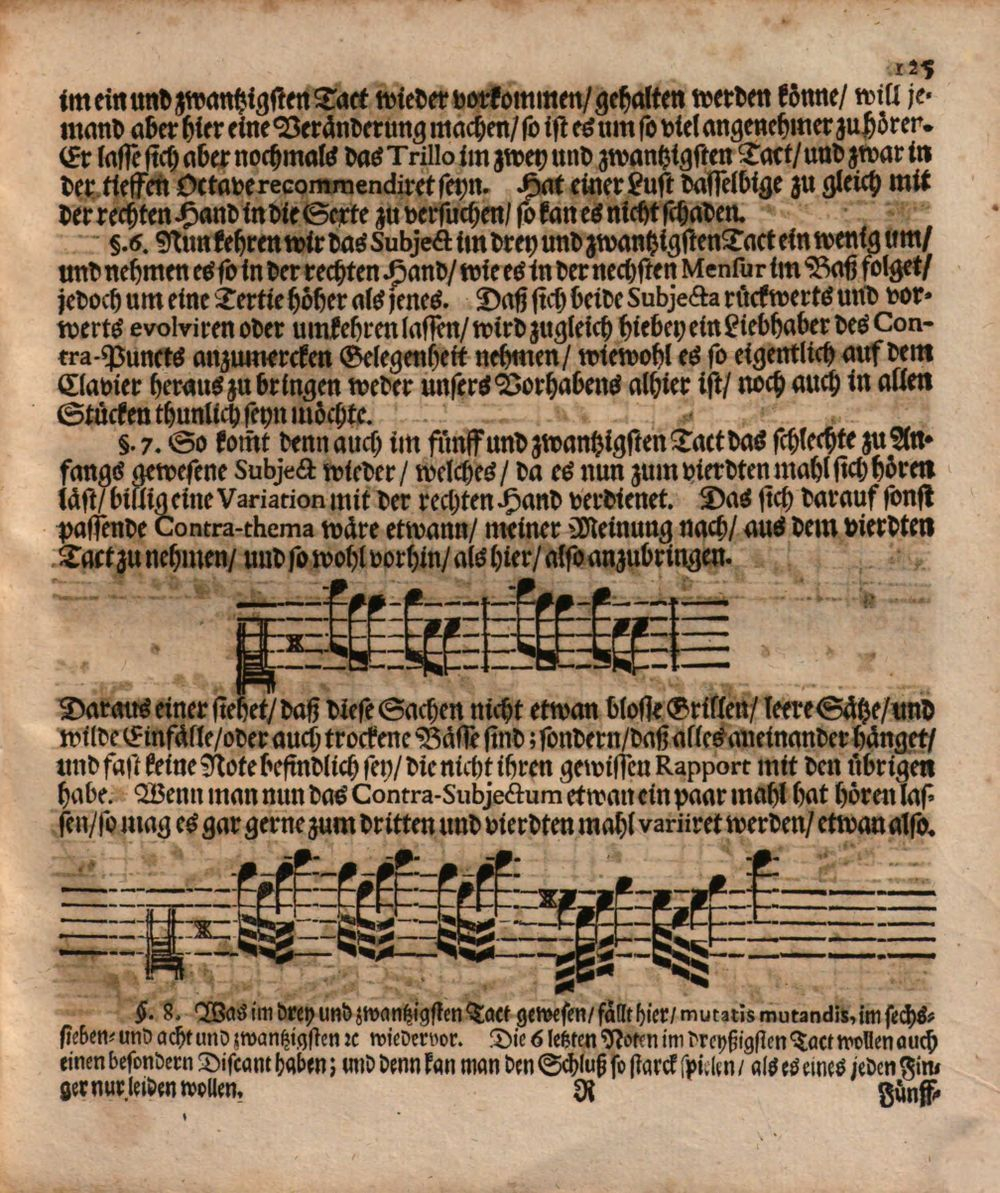 125
im ein und zwantzigsten Tact wieder vorkommen/ gehalten werden könne/ will je-
mand aber hier eine Veränderung machen/ so ist es um so viel angenehmer zu hören.
Er lasse sich aber nochmals das Trillo im zwey und zwantzigsten Tact/ und zwar in
der tieffen Octave recommendiret seyn. Hat einer Lust dasselbige zu gleich mit
der rechten Hand in die Sexte zu versuchen/ so kan es nicht schaden.
§. 6. Nun kehren wir das Subject im drey und zwantzigsten Tact ein wenig um/
und nehmen es so in der rechten Hand/ wie es in der nechsten Mensur im Baß folget/
jedoch um eine Tertie höher als jenes. Daß sich beide Subjecta rückwerts und vor-
werts evolviren oder umkehren lassen/ wird zugleich hiebey ein Liebhaber des Con-
tra-Puncts anzumercken Gelegenheit nehmen/ wiewohl es so eigentlich auf dem
Clavier heraus zu bringen weder unsers Vorhabens alhier ist/ noch auch in allen
Stücken thunlich seyn möchte.
§. 7. So kom̃t denn auch im fünff und zwantzigsten Tact das schlechte zu An-
fangs gewesene Subject wieder / welches / da es nun zum vierdten mahl sich hören
läst/ billig eine Variation mit der rechten Hand verdienet. Das sich darauf sonst
passende Contra-thema wäre etwann/ meiner Meinung nach/ aus dem vierdten
Tact zu nehmen/ und so wohl vorhin/ als hier/ also anzubringen.
Daraus einer siehet/ daß diese Sachen nicht etwan blosse Grillen/ leere Sätze/ und
wilde Einfälle/ oder auch trockene Bässe sind; sondern/ daß alles aneinander hänget/
und fast keine Note befindlich sey/ die nicht ihren gewissen Rapport mit den übrigen
habe. Wenn man nun das Contra-Subjectum etwan ein paar mahl hat hören las-
sen/ so mag es gar gerne zum dritten und vierdten mahl variiret werden/ etwan also.
§. 8. Was im drey und zwantzigsten Tact gewesen/ fällt hier/ mutatis mutandis, im sechs-
sieben- und acht und zwantzigsten ꝛc wieder vor. Die 6 letzten Noten im dreyßigsten Tact wollen auch
einen besondern Discant haben; und denn kan man den Schluß so starck spielen/ als es eines jeden Fin-
ger nur leiden wollen.
R
Fünff-